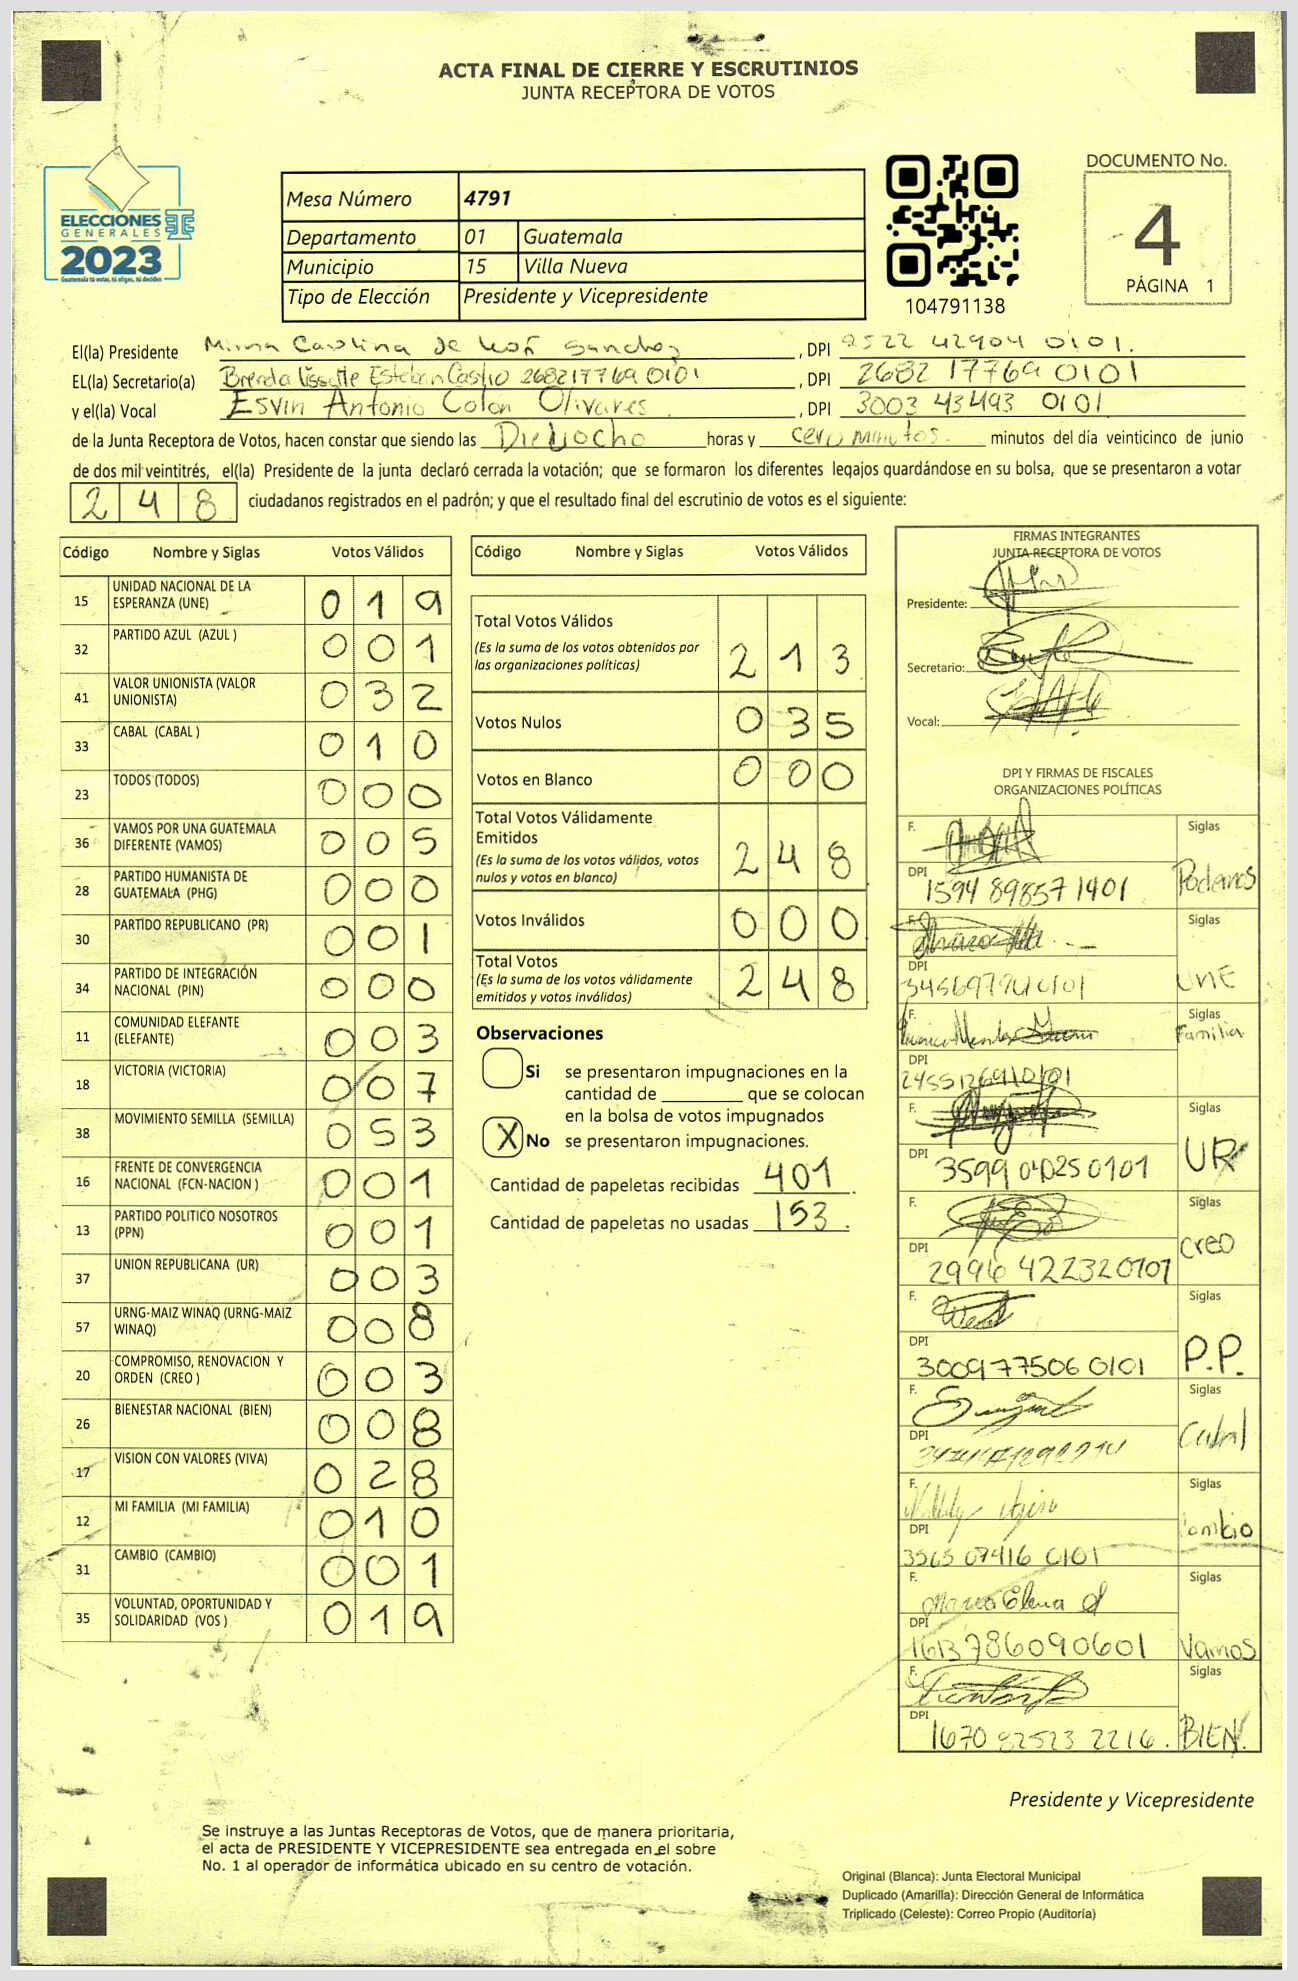 ACTA FINAL DE CIERRE Y ESCRUTINIOS
JUNTA RECEPTORA DE VOTOS
ELECCIONES
GENERALES
2023
Guatemala tú votas, tú eliges, tú decides
Mesa Número 4791
Departamento 01 Guatemala
Municipio 15 Villa Nueva
Tipo de Elección Presidente y Vicepresidente
104791138
DOCUMENTO No.
4
PÁGINA 1
El(la) Presidente Mirna Carolina de León Sanchez, DPI 2522 42904 0101.
EL(la) Secretario(a) Brenda Lissette Esteban Castro 268217769 0101, DPI 2682 17769 0101
y el(la) Vocal Esvin Antonio Colon Olivares, DPI 3003 43493 0101
de la Junta Receptora de Votos, hacen constar que siendo las Dieciocho horas y cero minutos. minutos del día veinticinco de junio
de dos mil veintitrés, el(la) Presidente de la junta declaró cerrada la votación; que se formaron los diferentes legajos quardándose en su bolsa, que se presentaron a votar
248 ciudadanos registrados en el padrón; y que el resultado final del escrutinio de votos es el siguiente:
Código Nombre y Siglas Votos Válidos
15 UNIDAD NACIONAL DE LA ESPERANZA (UNE) 019
32 PARTIDO AZUL (AZUL ) 001
41 VALOR UNIONISTA (VALOR UNIONISTA) 032
33 CABAL (CABAL ) 010
23 TODOS (TODOS) 000
36 VAMOS POR UNA GUATEMALA DIFERENTE (VAMOS) 005
28 PARTIDO HUMANISTA DE GUATEMALA (PHG) 000
30 PARTIDO REPUBLICANO (PR) 001
34 PARTIDO DE INTEGRACIÓN NACIONAL (PIN) 000
11 COMUNIDAD ELEFANTE (ELEFANTE) 003
18 VICTORIA (VICTORIA) 007
38 MOVIMIENTO SEMILLA (SEMILLA) 053
16 FRENTE DE CONVERGENCIA NACIONAL (FCN-NACION ) 001
13 PARTIDO POLITICO NOSOTROS (PPN) 001
37 UNION REPUBLICANA (UR) 003
57 URNG-MAIZ WINAQ (URNG-MAIZ WINAQ) 008
20 COMPROMISO, RENOVACION Y ORDEN (CREO ) 003
26 BIENESTAR NACIONAL (BIEN) 008
17 VISION CON VALORES (VIVA) 028
12 MI FAMILIA (MI FAMILIA) 010
31 CAMBIO (CAMBIO) 001
35 VOLUNTAD, OPORTUNIDAD Y SOLIDARIDAD (VOS ) 019
Código Nombre y Siglas Votos Válidos
Total Votos Válidos
(Es la suma de los votos obtenidos por las organizaciones políticas) 213
Votos Nulos 035
Votos en Blanco 000
Total Votos Válidamente Emitidos
(Es la suma de los votos válidos, votos nulos y votos en blanco) 248
Votos Inválidos 000
Total Votos
(Es la suma de los votos válidamente emitidos y votos inválidos) 248
Observaciones
Si se presentaron impugnaciones en la
cantidad de que se colocan
en la bolsa de votos impugnados
X No se presentaron impugnaciones.
Cantidad de papeletas recibidas 401.
Cantidad de papeletas no usadas 153.
FIRMAS INTEGRANTES
JUNTA RECEPTORA DE VOTOS
Presidente:
Secretario:
Vocal:
DPI Y FIRMAS DE FISCALES
ORGANIZACIONES POLÍTICAS
F. Siglas
DPI 1594 89857 1401 Podemos
F. Siglas
DPI UNE
F. Siglas
DPI Familia
F. Siglas
DPI UR
F. Siglas
DPI 2996 42232 0101 creo
F. Siglas
DPI 300977506 0101 P.P.
F. Siglas
DPI Cabal
F. Siglas
DPI 3565 07416 0101 Cambio
F. Siglas
DPI 1613786090601 Vamos
F. Siglas
DPI 1670 82523 2216. BIEN.
Presidente y Vicepresidente
Se instruye a las Juntas Receptoras de Votos, que de manera prioritaria,
el acta de PRESIDENTE Y VICEPRESIDENTE sea entregada en el sobre
No. 1 al operador de informática ubicado en su centro de votación.
Original (Blanca): Junta Electoral Municipal
Duplicado (Amarilla): Dirección General de Informática
Triplicado (Celeste): Correo Propio (Auditoría)